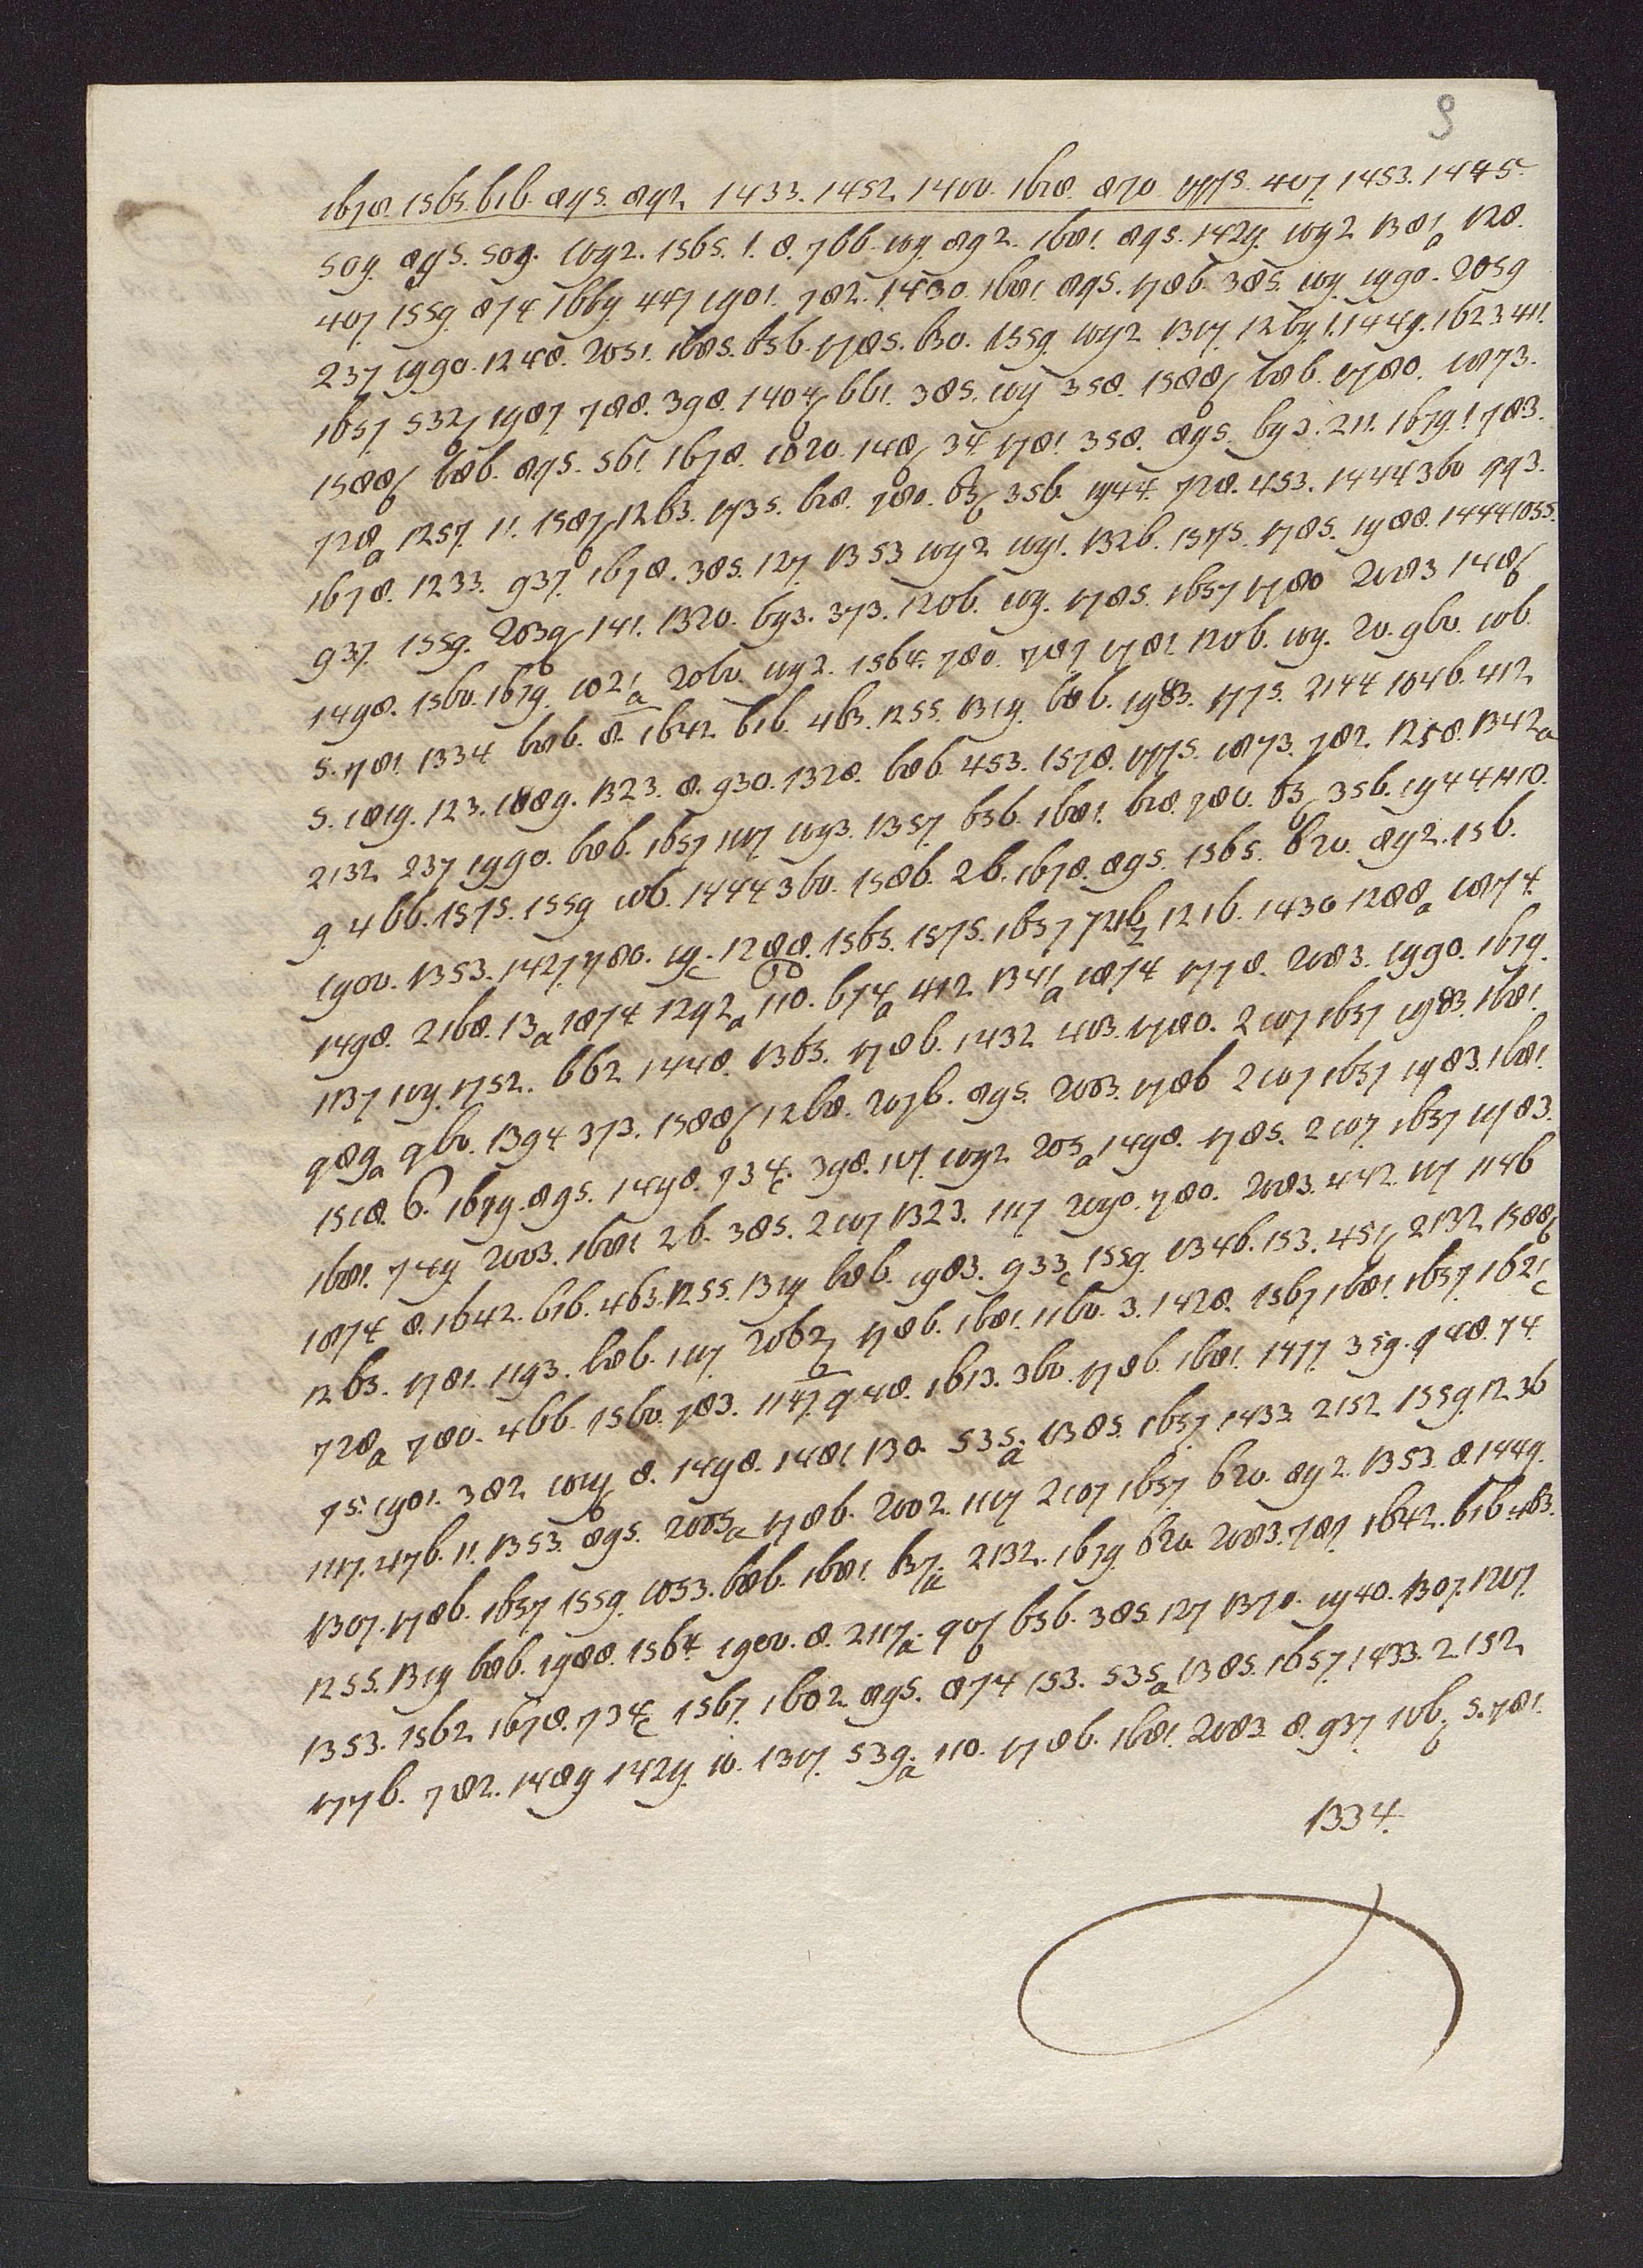 9
1670. 1565. 616. 895. 892 1433. 1452 1400. 1628. 870 1775. 407. 1453. 1445.
509. 895. 509. 1092. 1565. 1. 8. 766. 109. 892. 1681. 895. 1429. 1092 1381a 128.
407 1559. 874 1669. 447 1901. 782. 1430. 1681. 895. 1786. 385. 109. 1990. 2059
237 1990. 1248. 2051. 1685. 656. 1785. 630. 1559. 1092 1317. 1269. 1. 1449. 1623 411.
1657 532b 1987. 788. 398. 1404b 661. 385. 109 358. 1588b 686. 1780. 1873.
1588b 686. 895. 561. 1678. 1020. 148b 34. 1781 358. 895. 693. 211. 1679. 1. 783.
728a 1257. 11. 1587b 1263. 1735. 628. 780. 63b 356. 1944. 728. 453. 1444 360 993.
1678. 1233. 937. 1678. 385. 127. 1353 1092 1091. 1326. 1375. 1785. 1988. 1444 1055.
937. 1559. 2039b 141. 1320. 693. 373. 1206. 109. 1785. 1657 1780 2083 148b
1498. 1560. 1679. 1021a 2060. 1092. 1564. 780. 787 1781 1206. 109. 20. 960. 106.
5. 781. 1334 686. 8. 1642 616. 463. 1255. 1319. 686. 1983. 1775. 2144 1046. 412
5. 1819. 123. 1889. 1323. 8. 930. 1328. 686. 453. 1578. 1775. 1873. 782. 1258. 1342a
2132 237 1990. 686. 1657 1107 1093. 1357. 656. 1681. 628. 780. 63b 356. 1944 1410.
9. 466. 1575. 1559 106. 1444 360. 1586. 26. 1678. 895. 1565. 620. 892. 156.
1900. 1353. 1427. 780. 19c 1288. 1565. 1575. 1657 1216. 1430 1288a 1874.
1498. 2168. 13a 1874 1292a 110. 674a 412 1341a 1874 1778. 2083. 1990. 1679.
1137 109. 1752. 662 1448. 1365. 1786. 1432 403. 1780. 2107 1657 1983. 1681.
989a 960. 1394 373. 1588b 1268. 2076. 895. 2083. 1786 2107 1657 1983. 1681.
1518. 6. 1679. 895. 1498. 734c 398. 107. 1092 205a 1498. 1785. 2107 1657 1983.
1681. 749 2003. 1681 26. 385. 2107 1323. 1107 2090. 780. 2083. 442. 107 1146
1874 8. 1642. 616. 463. 1255. 1319 686. 1983. 933c 1559 1346. 153. 451b 2132 1588b
1263. 1781. 1193. 686. 1107 2062b 1786. 1681. 1160. 3. 1428. 1567 1681. 1657. 1621c
728a 780. 466. 1560. 783. 1147. 948. 1613. 360. 1786. 1681. 1477. 359. 948. 74.
75. 1901. 382 109b 8. 1498. 1481 130. 535a 1385. 1657. 1433 2152 1559 1236
1117. 476. 11. 1353. 895. 2005a 1786. 2002. 1107 2107 1657 620. 892. 1353. 8. 1449.
1307. 1786. 1657 1559. 1053. 686. 1681. 637a 2132. 1679 620 2083. 787 1642. 616. 463.
1255. 1319 686. 1988. 1564. 1900. 8. 2117a 90b 656. 385. 127 1370. 1940. 1307. 1207.
1353. 1562 1678. 734c 1567. 1602. 895. 874 153. 535a 1385. 1657. 1433. 2152
1776. 782. 1489 1429. 10. 1317. 539a 110. 1786. 1681. 2083. 8. 937 106b 5. 781.
1334.